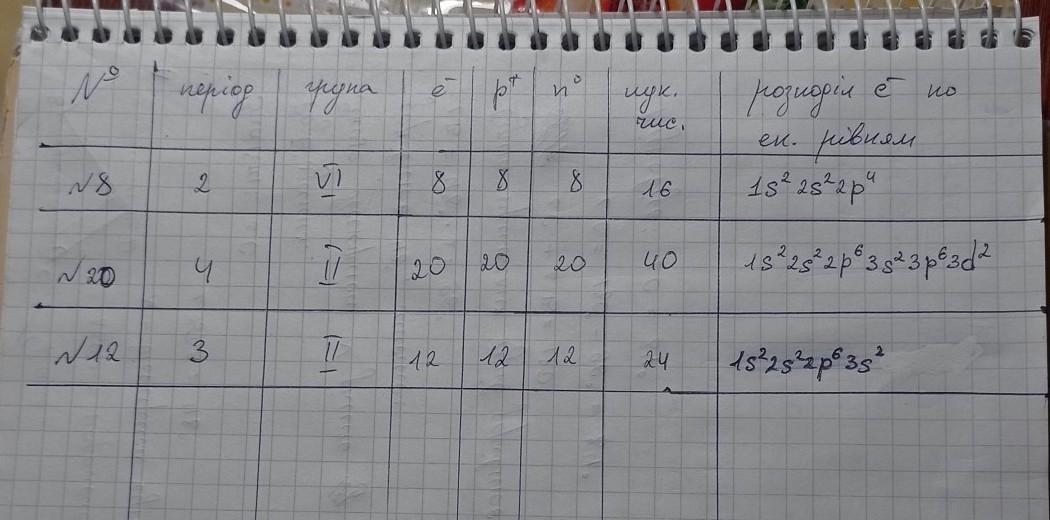 № період група ē p⁺ n⁰ нук. чис. розподіл ē по ен. рівням
№8 2 VI 8 8 8 16 1s² 2s² 2p⁴
№20 4 II 20 20 20 40 1s² 2s² 2p⁶ 3s² 3p⁶ 3d²
№12 3 II 12 12 12 24 1s² 2s² 2p⁶ 3s²